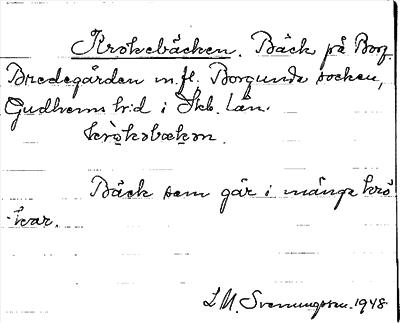 Krokebäcken. Bäck på Borg.
Bredegården m.fl. Borgunda socken,
Gudhems h:d i Skb. län.
krǜkəbækən.
Bäck som går i många krö-
kar.
L. M. Svenungsson. 1948